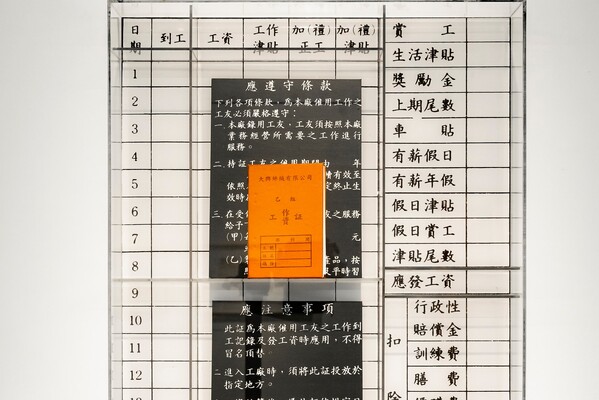 日期
到工
工資
工作津貼
加(禮)正工
加(禮)津貼
賞 工
生活津貼
獎勵金
上期尾數
車 貼
有薪假日
有薪年假
假日津貼
假日賞工
津貼尾數
應發工資
扣除
行政性
賠償金
訓練費
膳 費
1
2
3
4
5
6
7
8
9
10
11
12
應遵守條款
下列各項條款,為本廠僱用工作之
工友必須嚴格遵守:
一.本廠錄用工友,工友須按照本廠
業務經營所需要之工作進行
服務。
二.持証工友之僱用期間由 年
續有效至
依照
定終止生
效時
三.在受僱
友之服務
給予
(甲)每
元
(乙)
產品,按
平時習
有限公司
乙 組
工作
証
應注意事項
此証為本廠僱用工友之工作到
工記錄及發工資時應用,不得
冒名頂替。
二.進入工廠時,須將此証投放於
指定地方。